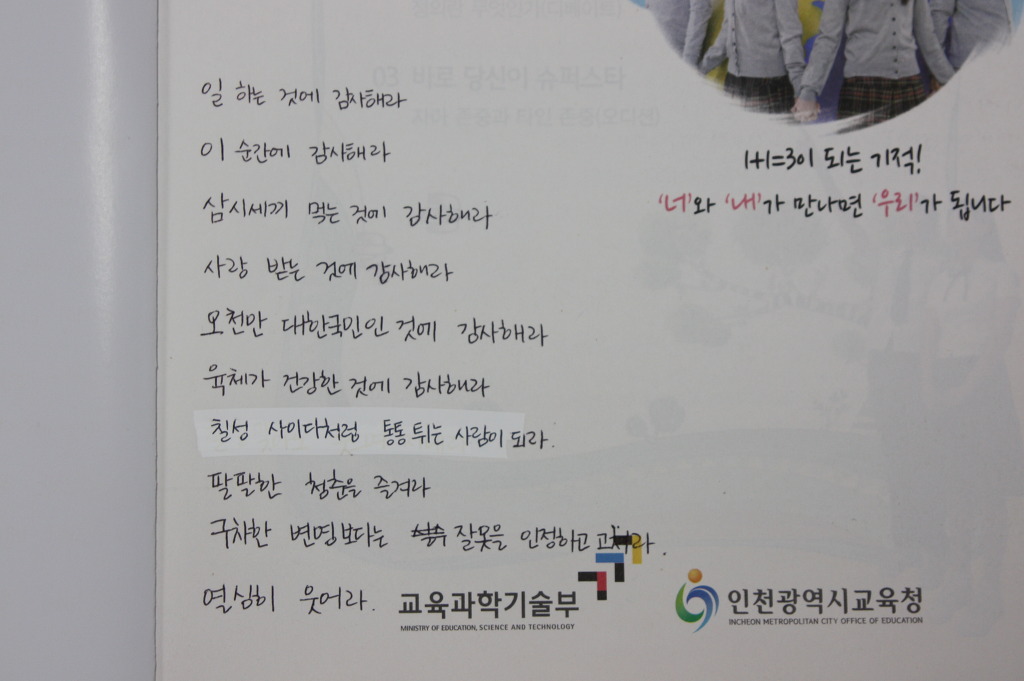 03 바로 당신이 슈퍼스타
일 하는 것에 감사해라
이 순간에 감사해라
삼시세끼 먹는 것에 감사해라
사랑 받는 것에 감사해라
오천만 대한국민인 것에 감사해라
육체가 건강한 것에 감사해라
칠성 사이다처럼 통통 튀는 사람이 되라.
팔팔한 청춘을 즐겨라
구차한 변명보다는 잘못을 인정하고 고쳐라.
열심히 웃어라.
1+1=3이 되는 기적!
'너'와 '내'가 만나면 '우리'가 됩니다
교육과학기술부
MINISTRY OF EDUCATION, SCIENCE AND TECHNOLOGY
인천광역시교육청
INCHEON METROPOLITAN CITY OFFICE OF EDUCATION